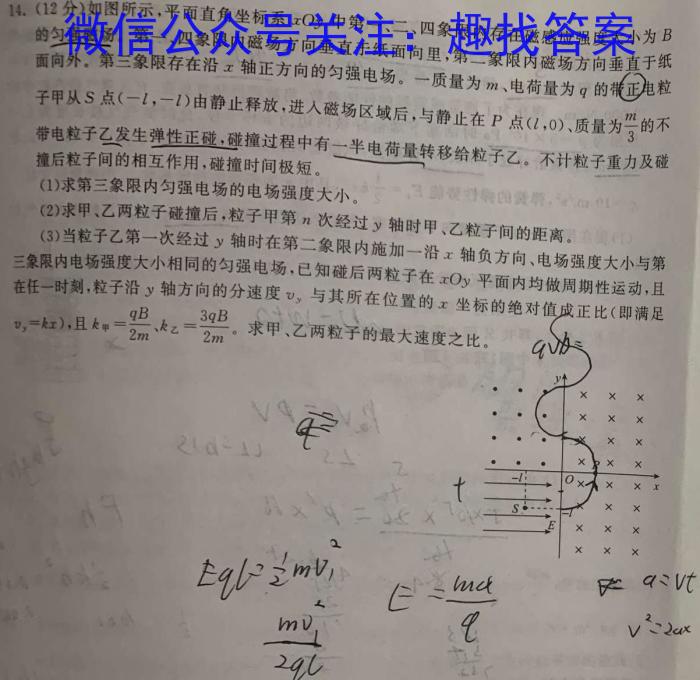 14.(12分)如图所示,平面直角坐标系xOy中第一、二、四象限内存在磁感应强度大小为B
微信公众号关注:趣找答案
的匀强磁场,第一、四象限内磁场方向垂直于纸面向里,第二象限内磁场方向垂直于纸
面向外。第三象限存在沿x轴正方向的匀强电场。一质量为m、电荷量为q的带正电粒
子甲从S点(-l,-l)由静止释放,进入磁场区域后,与静止在P点(l,0)、质量为m/3的不
带电粒子乙发生弹性正碰,碰撞过程中有一半电荷量转移给粒子乙。不计粒子重力及碰
撞后粒子间的相互作用,碰撞时间极短。
(1)求第三象限内匀强电场的电场强度大小。
(2)求甲、乙两粒子碰撞后,粒子甲第n次经过y轴时甲、乙粒子间的距离。
(3)当粒子乙第一次经过y轴时在第二象限内施加一沿x轴负方向、电场强度大小与第
三象限内电场强度大小相同的匀强电场,已知碰后两粒子在xOy平面内均做周期性运动,且
在任一时刻,粒子沿y轴方向的分速度v_y与其所在位置的x坐标的绝对值成正比(即满足
v_y=kx),且k甲=qB/2m、k乙=3qB/2m。求甲、乙两粒子的最大速度之比。
qvB=
y
-l
O
P
x
S
-l
E
+
Eql=1/2mv₁²
mv₁²/2ql
E=ma/q
a=vt
v²=2ax